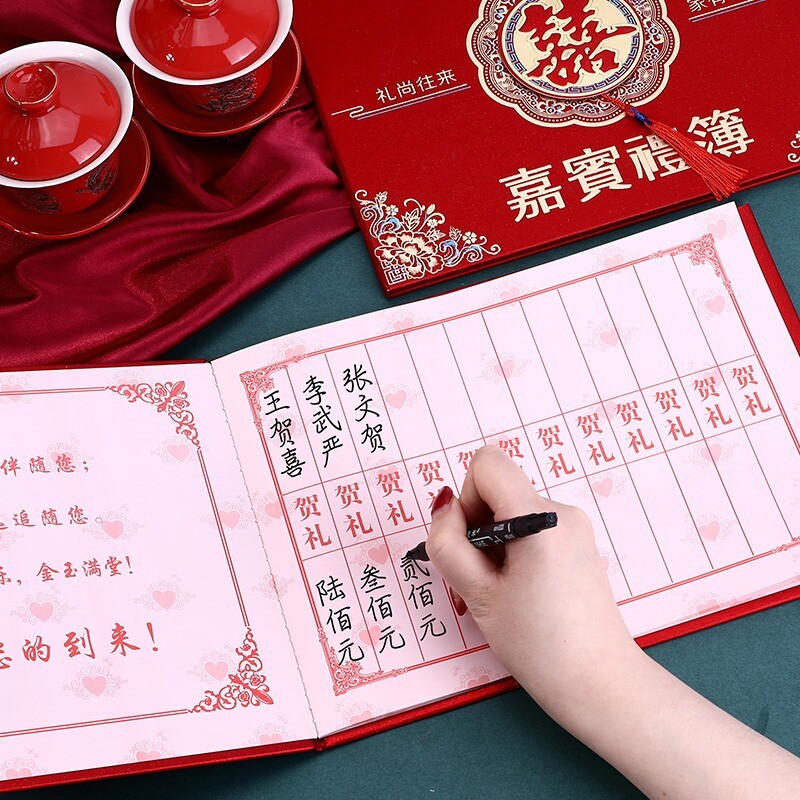 礼尚往来
嘉賓禮簿
伴随您；
追随您。
乐，金玉满堂！
的到来！
王贺喜
李武严
张文贺
贺礼
贺礼
贺礼
贺礼
贺
贺
贺礼
贺礼
贺礼
贺礼
贺礼
贺礼
陆佰元
叁佰元
贰佰元